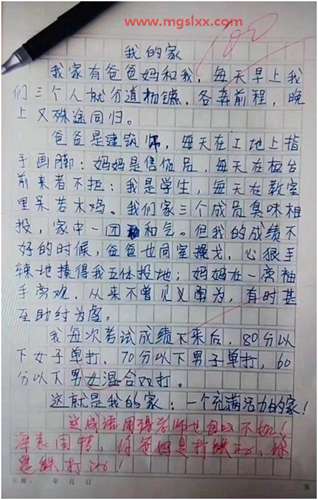 www.mgslxx.com
我的家
我家有爸爸妈和我，每天早上我
们三个人就分道扬镳，各奔前程，晚
上又殊途同归。
爸爸是建筑师，每天在工地上指
手画脚；妈妈是售货员，每天在柜台
前来者不拒；我是学生，每天在教室
里呆若木鸡。我们家三个成员臭味相
投，家中一团和气。但我的成绩不
好的时候，爸爸也同室操戈，心狠手
辣地揍得我五体投地；妈妈在一旁袖
手旁观，从来不曾见义勇为，有时甚
至助纣为虐。
我每次考试成绩下来后，80分以
下女子单打，70分以下男子单打，60
分以下男女混合双打。
这就是我的家：一个充满活力的家！
这成语用得